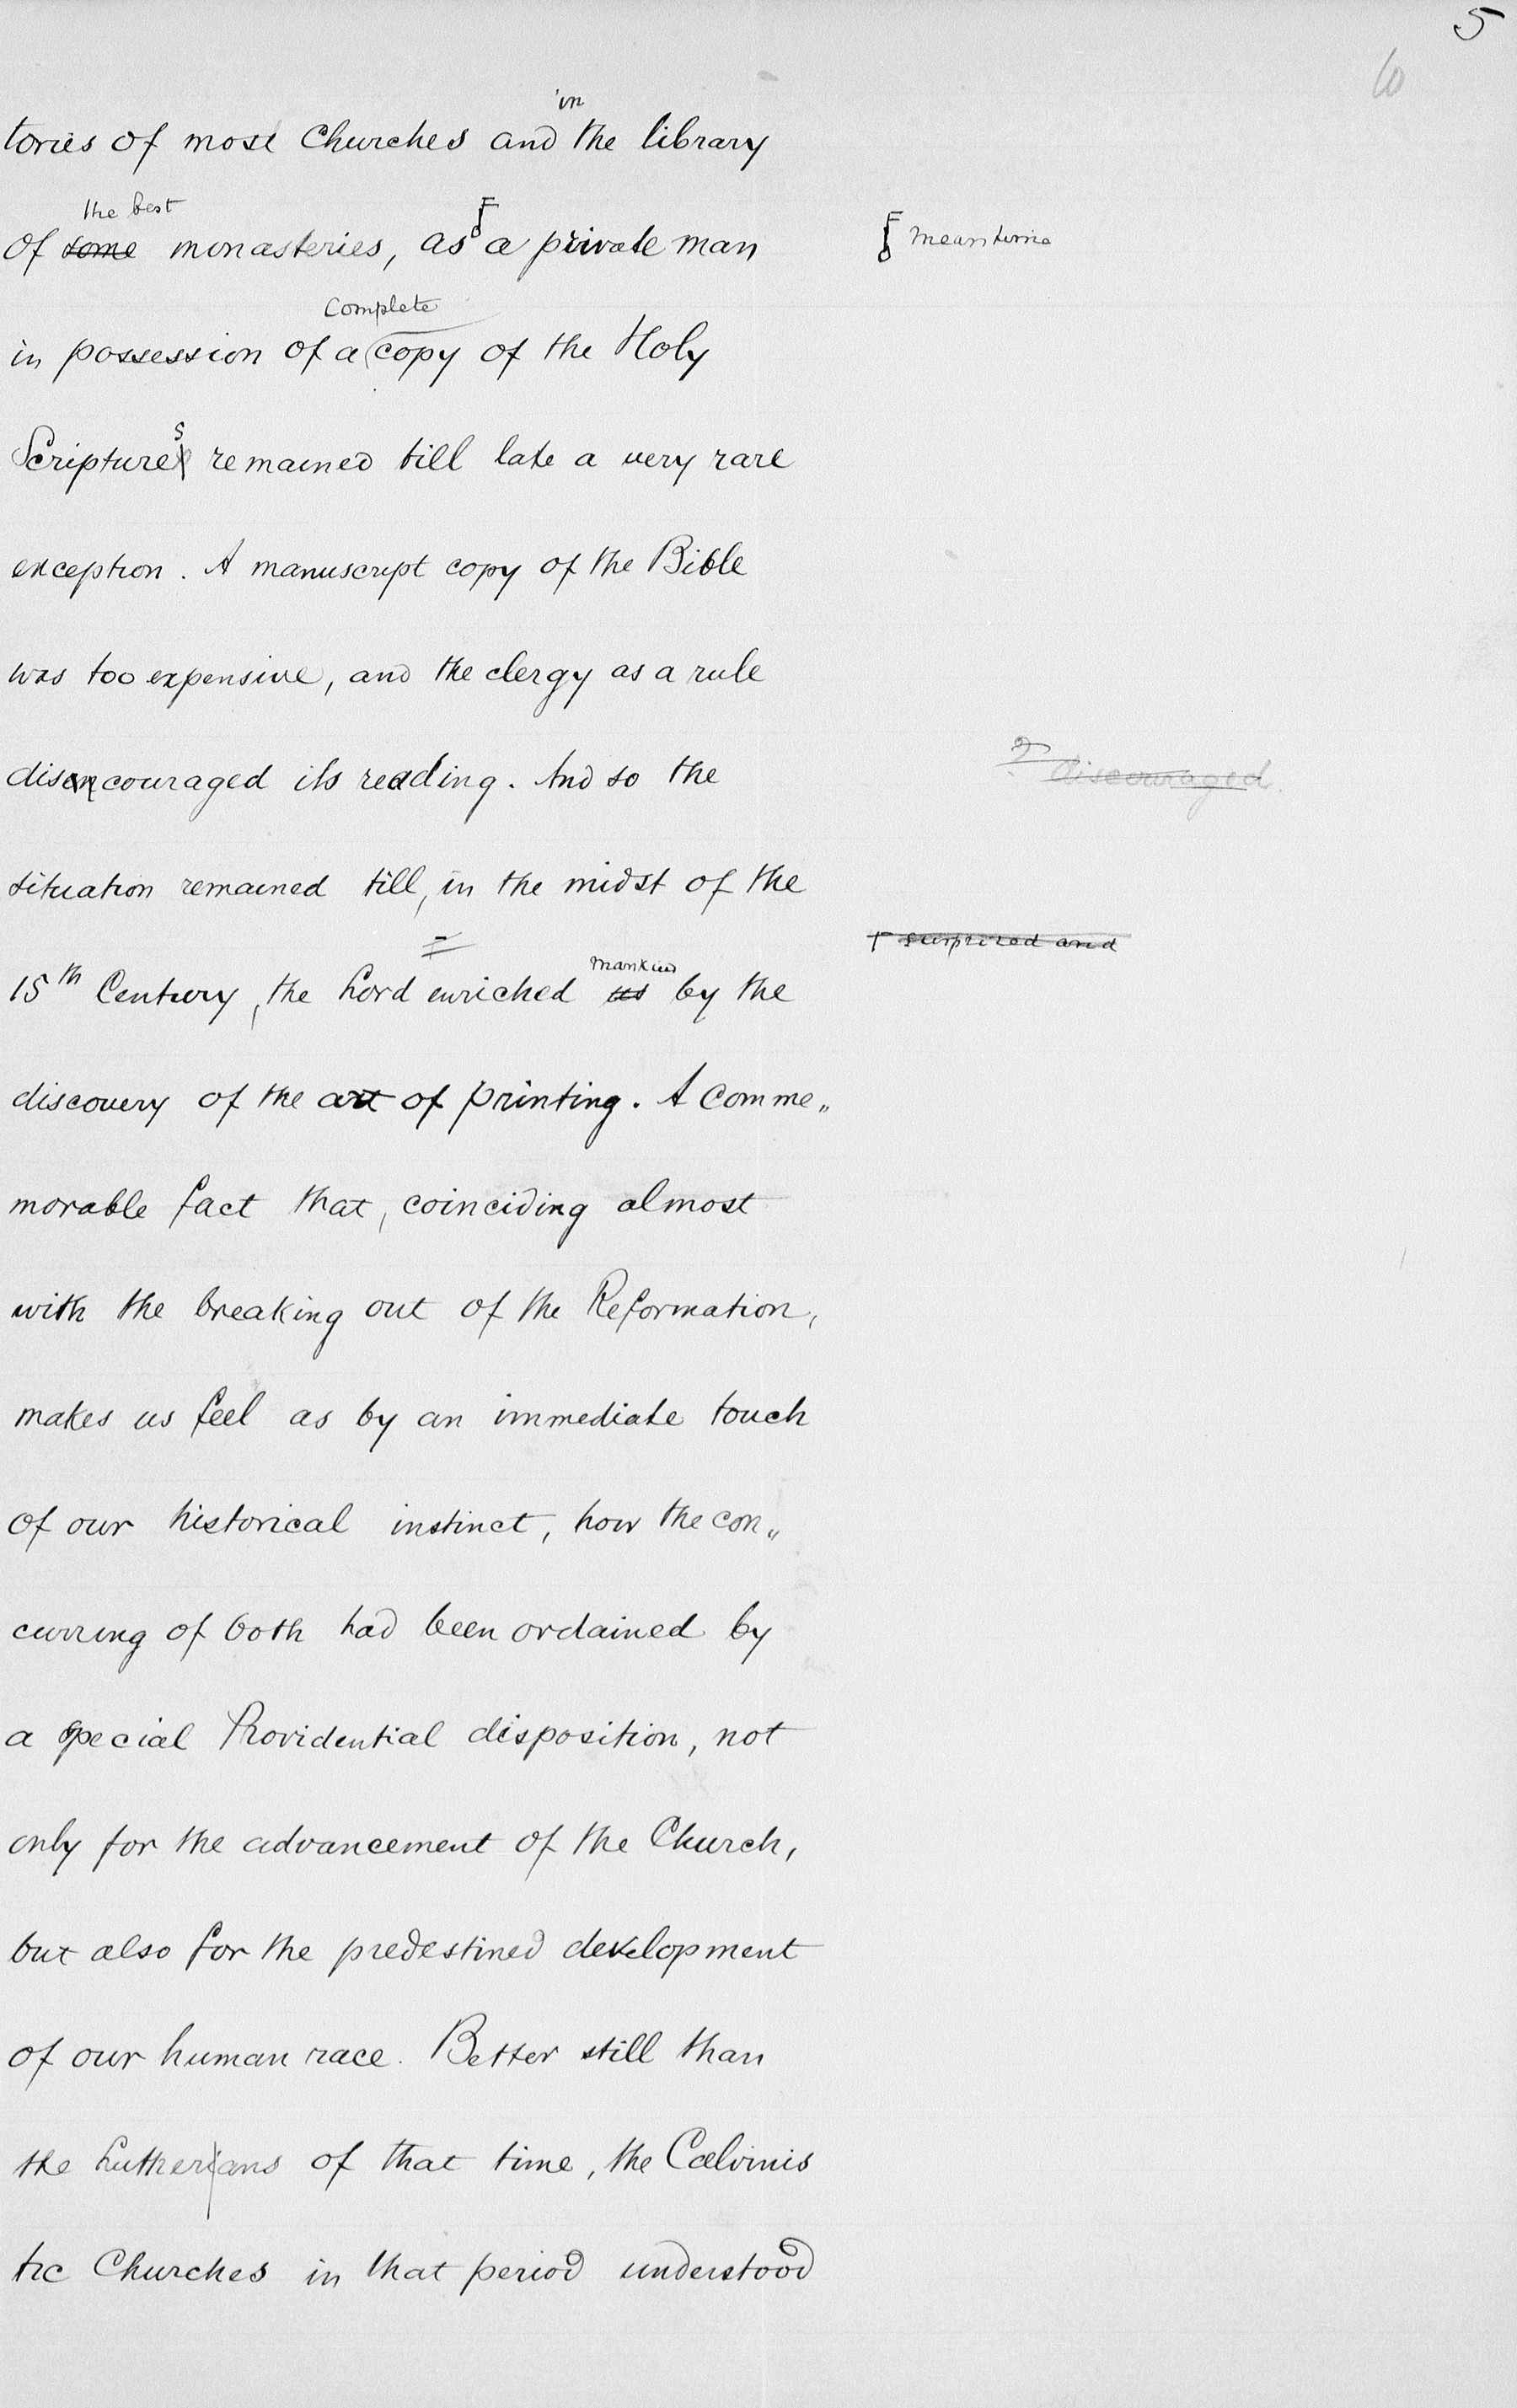 5
6
in
tories of most Churches and the library
the best
of some monasteries, as a private man
meantime
complete
in possession of a copy of the Holy
Scriptures remained till late a very rare
exception. A manuscript copy of the Bible
was too expensive, and the clergy as a rule
disencouraged its reading. And so the
? discouraged
situation remained till, in the midst of the
surprized and
mankind
15th Century, the Lord enriched us by the
discovery of the art of printing. A comme„
morable fact that, coinciding almost
with the breaking out of the Reformation,
makes us feel as by an immediate touch
of our historical instinct, how the con„
curring of both had been ordained by
a special Providential disposition, not
only for the advancement of the Church,
but also for the predestined development
of our human race. Better still than
the Lutherians of that time, the Calvinis
tic Churches in that period understood